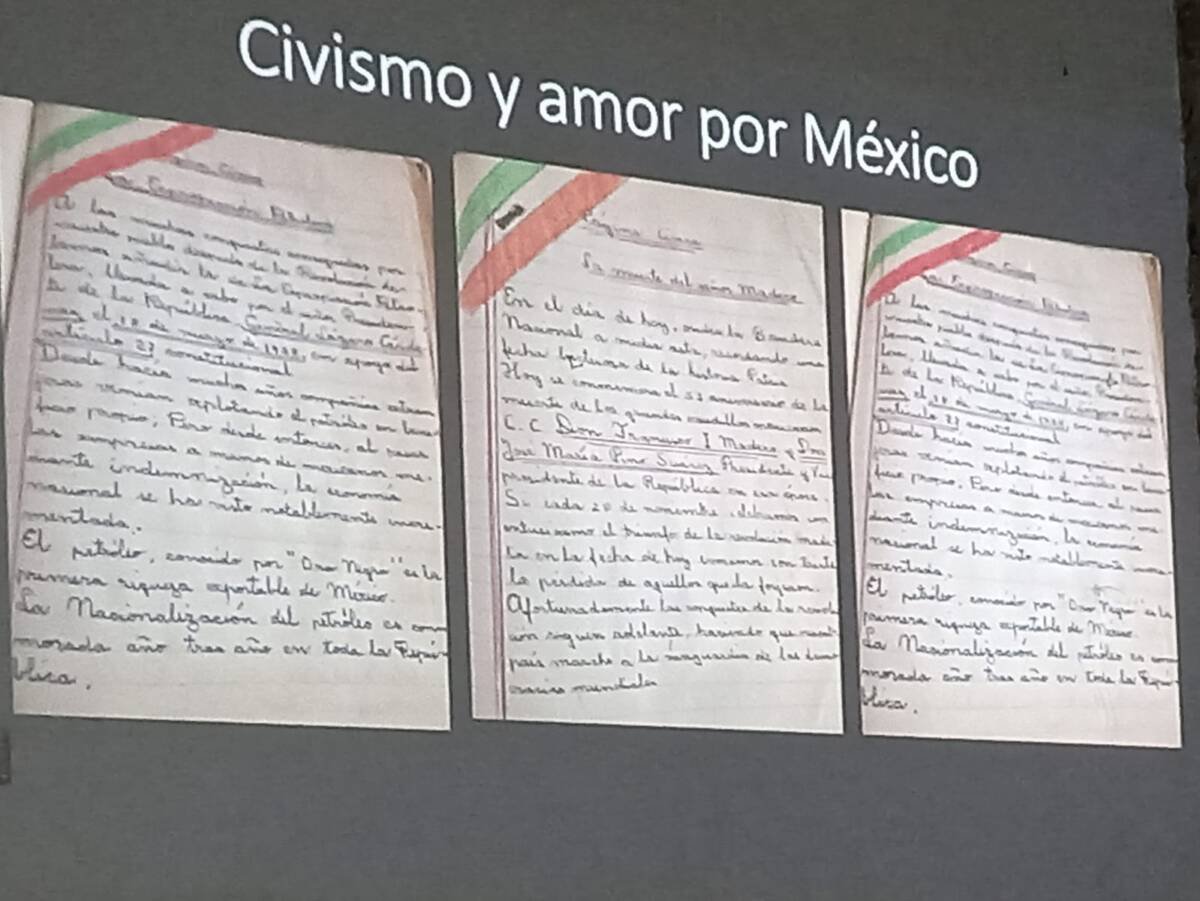 Civismo y amor por México
Página Cívica
La Expropiación Petrolera
A las muchas conquistas conseguidas por
nuestro pueblo después de la Revolución de-
bemos añadir la de la Expropiación Petro-
lera, llevada a cabo por el señor Presiden-
te de la República General Lázaro Cárde
nas el 18 de marzo de 1938, en apoyo del
artículo 27 constitucional
Desde hacía muchos años compañías extran
jeras venían explotando el petróleo en bene
ficio propio; Pero desde entonces, al pasar
las empresas a manos de mexicanos me-
diante indemnización, la economía
nacional se ha visto notablemente incre-
mentada.
El petróleo, conocido por "Oro Negro" es la
primera riqueza exportable de México.
La Nacionalización del petróleo es conme
morada año tras año en toda la Repú-
blica.
Página Cívica
La muerte del señor Madero
En el día de hoy, ondea la Bandera
Nacional a media asta, recordando una
fecha luctuosa de la historia Patria
Hoy se conmemora el 53 aniversario de la
muerte de los grandes caudillos mexicanos
C. C. Don Francisco I Madero y Don
José María Pino Suarez Presidente y Vice
presidente de la República en esa época.
Si cada 20 de noviembre, celebramos con
entusiasmo el triunfo de la revolución made
en la fecha de hoy
la pérdida de aquellos que la forjaron.
Afortunadamente las conquistas de la revolu
ción siguen adelante, haciendo que nuestro
país marche a la vanguardia de las demo
cracias mundiales
Página Cívica
La Expropiación Petrolera
A las muchas conquistas conseguidas por
nuestro pueblo después de la Revolución de-
bemos añadir la de la Expropiación Petro-
lera, llevada a cabo por el señor Presiden-
te de la República General Lázaro Cárde
nas el 18 de marzo de 1938, en apoyo del
artículo 27 constitucional
Desde hacía muchos años compañías extran
jeras venían explotando el petróleo en bene
ficio propio; Pero desde entonces, al pasar
las empresas a manos de mexicanos me-
diante indemnización, la economía
nacional se ha visto notablemente incre-
mentada.
El petróleo, conocido por "Oro Negro" es la
primera riqueza exportable de México.
La Nacionalización del petróleo es conme
morada año tras año en toda la Repú-
blica.